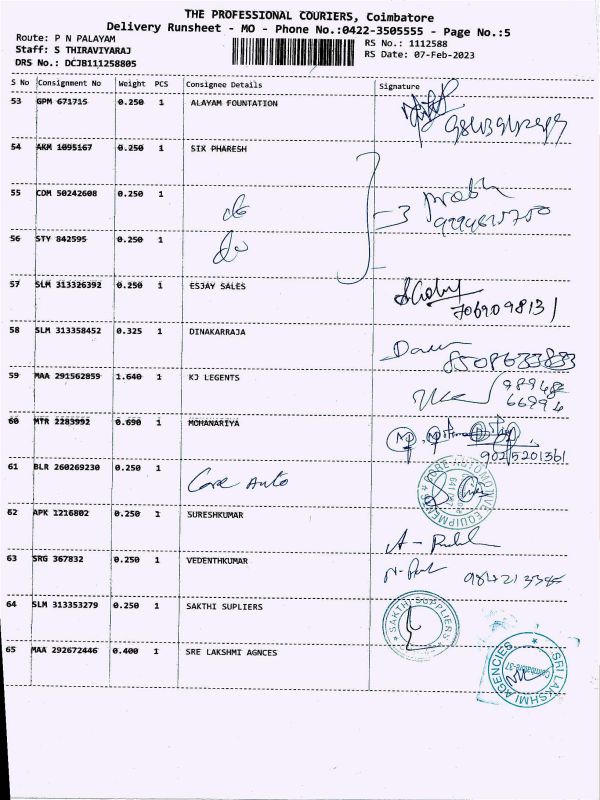 THE PROFESSIONAL COURIERS, Coimbatore
Delivery Runsheet - MO - Phone No.:0422-3505555 - Page No.:5
Route: P N PALAYAM
Staff: S THIRAVIYARAJ
DRS No.: DCJB111258805
RS No.: 1112588
RS Date: 07-Feb-2023
S No Consignment No Weight PCS Consignee Details Signature
53 GPM 671715 0.250 1 ALAYAM FOUNTATION
54 AKM 1095167 0.250 1 SIX PHARESH
55 COM 50242608 0.250 1 do
56 STY 842595 0.250 1 do
3
57 SLM 313326392 0.250 1 ESJAY SALES
7069098131
58 SLM 313358452 0.325 1 DINAKARRAJA
8508633833
59 MAA 291562859 1.640 1 KJ LEGENTS
60 MTR 2283992 0.690 1 MOHANARIYA
9025201361
61 BLR 260269230 0.250 1 Core Auto
CORE AUTOMOTIVE EQUIPMENTS
62 APK 1216802 0.250 1 SURESHKUMAR
63 SRG 367832 0.250 1 VEDENTHKUMAR
64 SLM 313353279 0.250 1 SAKTHI SUPLIERS
SAKTHI SUPPLIERS
65 MAA 292672446 0.400 1 SRE LAKSHMI AGNCES
SRI LAKSHMI AGENCIES
Coimbatore-37